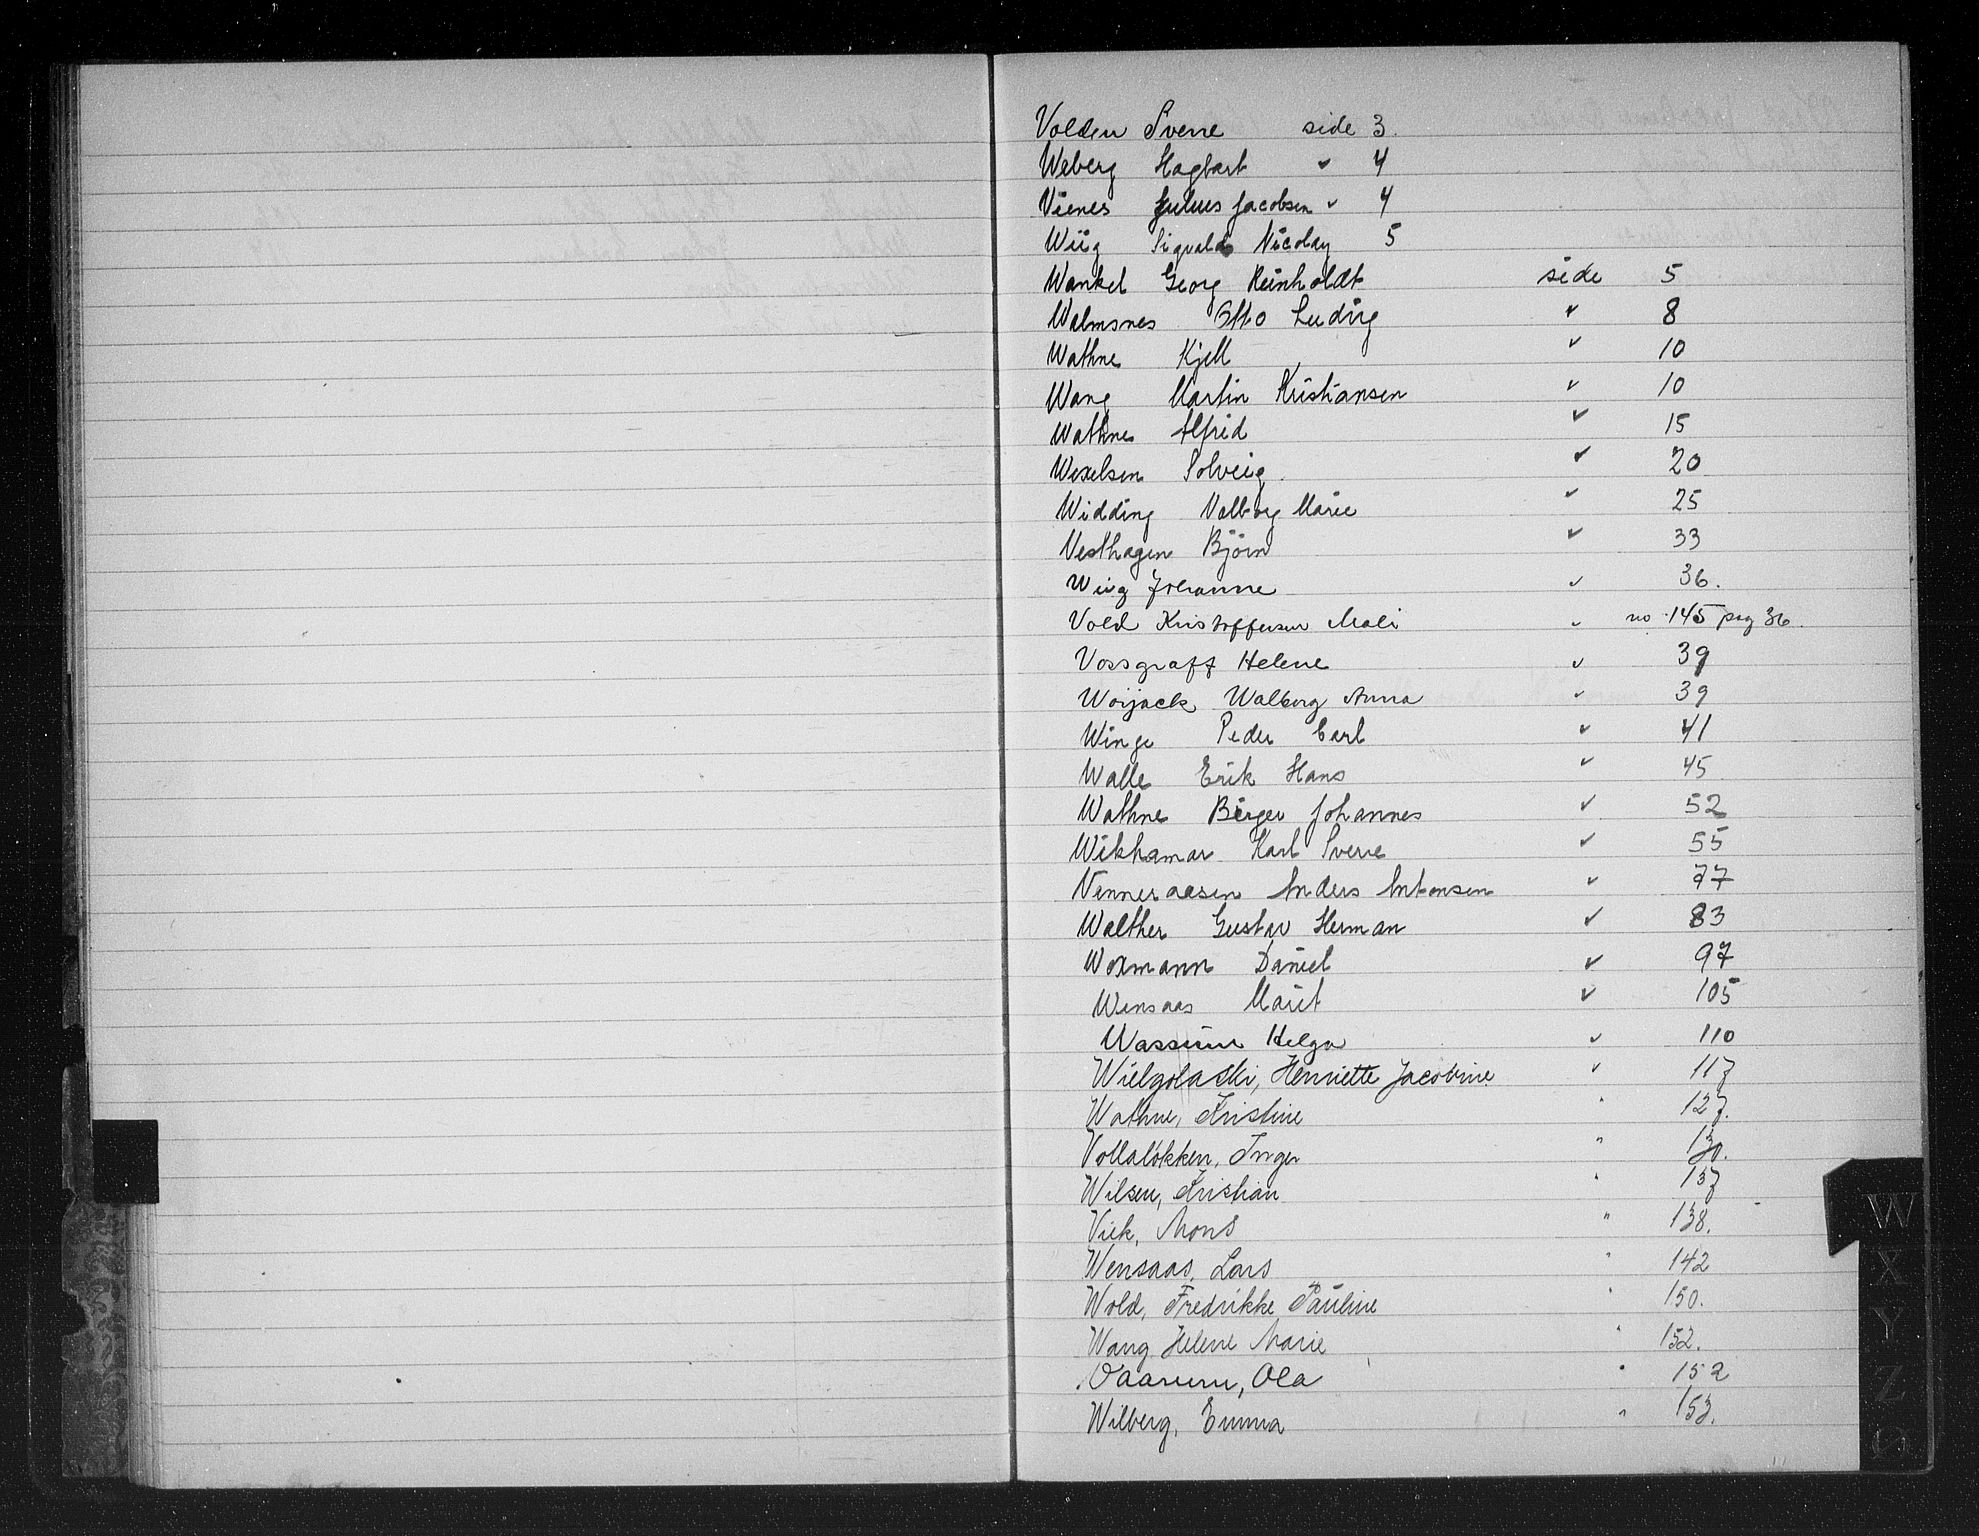 Volden Sverre side 3.
Weberg Hagbart " 4
Vienes Julius Jacobsen " 4
Wiig Sigvald Nicolay 5
Wankel Georg Reinholdt side 5
Walmsnes Otto Ludvig " 8
Wathne Kjell " 10
Wang Martin Kristiansen " 10
Wathne Alfrid " 15
Wexelsen Solveig " 20
Widding Valborg Marie " 25
Vesthagen Bjørn " 33
Wiig Johanne " 36.
Vold Kristoffersen Mali " no 145 pag 36.
Vossgraff Helene " 39
Woijack Walborg Anna " 39
Winge Peder Carl " 41
Walle Erik Hans " 45
Wathne Birger Johannes " 52
Wikhamar Karl Sverre " 55
Venneraasen Anders Antonsen " 77
Walther Gustav Herman " 83
Woxmann Daniel " 97
Wensaas Marit " 105
Wassum Helga " 110
Wielgolaski, Henriette Jacobine " 117
Wathne, Kristine " 127.
Volla­løkken, Inger " 130.
Wilsen, Kristian " 137
Viek, Mons " 138.
Wensaas, Lars " 142
Wold, Fredrikke Pauline " 150.
Wang Helene Marie " 152.
Vaarum, Ola " 152
Wilberg, Emma " 153.
W
X
Y
Z